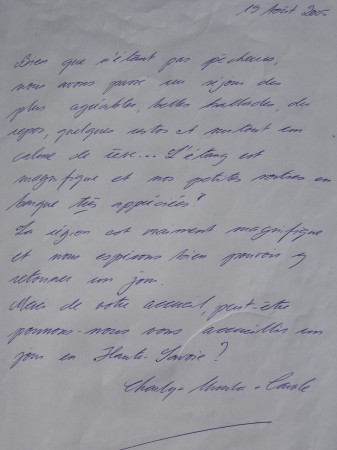 19 Août 200
Bien que n'étant pas pêcheurs,
nous avons passé un séjour des
plus agréables, belles ballades, du
repos, quelques restos et surtout un
calme de rêve... L'étang est
magnifique et nos petites sorties en
barque très appréciées !
La région est vraiment magnifique
et nous espérons bien pouvoir y
retourner un jour.
Merci de votre accueil, peut-être
pourrons-nous vous accueillir un
jour en Haute-Savoie ?
Charly - - Carole